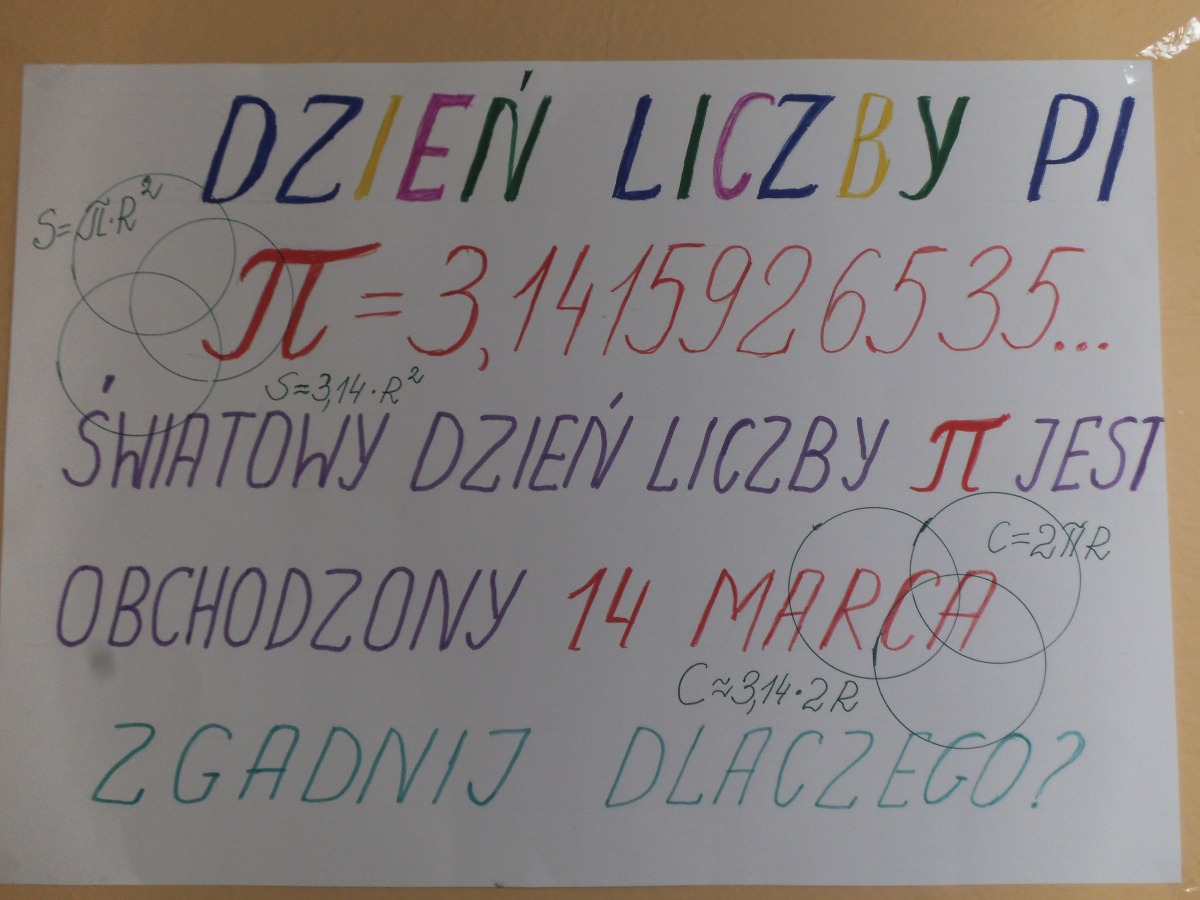 DZIEŃ LICZBY PI
S=π·R²
π=3,1415926535...
S≈3,14·R²
ŚWIATOWY DZIEŃ LICZBY π JEST
C=2πR
OBCHODZONY 14 MARCA
C≈3,14·2R
ZGADNIJ DLACZEGO?